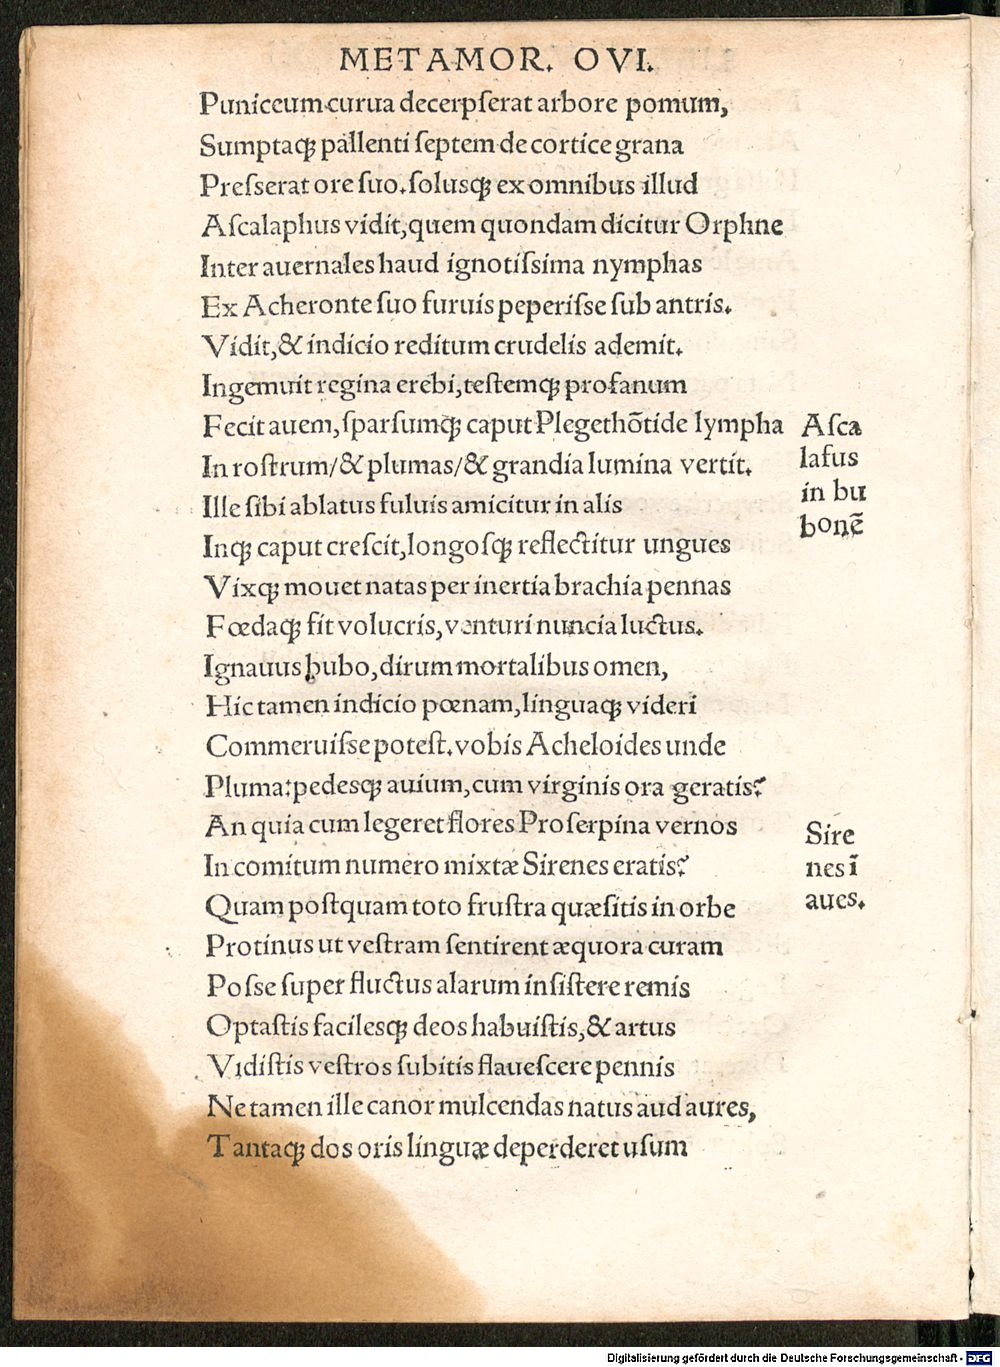 METAMOR. OVI.
Puniceum curua decerpſerat arbore pomum,
Sumptaqꝫ pallenti ſeptem de cortice grana
Preſſerat ore ſuo. ſolusqꝫ ex omnibus illud
Aſcalaphus vidit, quem quondam dicitur Orphne
Inter auernales haud ignotiſſima nymphas
Ex Acheronte ſuo furuis peperiſſe ſub antris.
Vidit, & indicio reditum crudelis ademit.
Ingemuit regina erebi, teſtemqꝫ profanum
Fecit auem, ſparſumqꝫ caput Plegethõtide lympha
In roſtrum/& plumas/& grandia lumina vertit.
Aſca
lafus
in bu
bonẽ
Ille ſibi ablatus fuluis amicitur in alis
Inqꝫ caput creſcit, longoſqꝫ reflectitur ungues
Vixqꝫ mouet natas per inertia brachia pennas
Fœdaqꝫ fit volucris, venturi nuncia luctus.
Ignauus bubo, dirum mortalibus omen,
Hic tamen indicio pœnam, linguaqꝫ videri
Commeruiſſe poteſt. vobis Acheloides unde
Pluma: pedesqꝫ auium, cum virginis ora geratis?
An quia cum legeret flores Proſerpina vernos
In comitum numero mixtæ Sirenes eratis?
Sire
nes ĩ
aues.
Quam poſtquam toto fruſtra quæſitis in orbe
Protinus ut veſtram ſentirent æquora curam
Poſſe ſuper fluctus alarum inſiſtere remis
Optaſtis facilesqꝫ deos habuiſtis, & artus
Vidiſtis veſtros ſubitis flaueſcere pennis
Ne tamen ille canor mulcendas natus aud aures,
Tantaqꝫ dos oris linguæ deperderet uſum
Digitalisierung gefördert durch die Deutsche Forschungsgemeinschaft - DFG